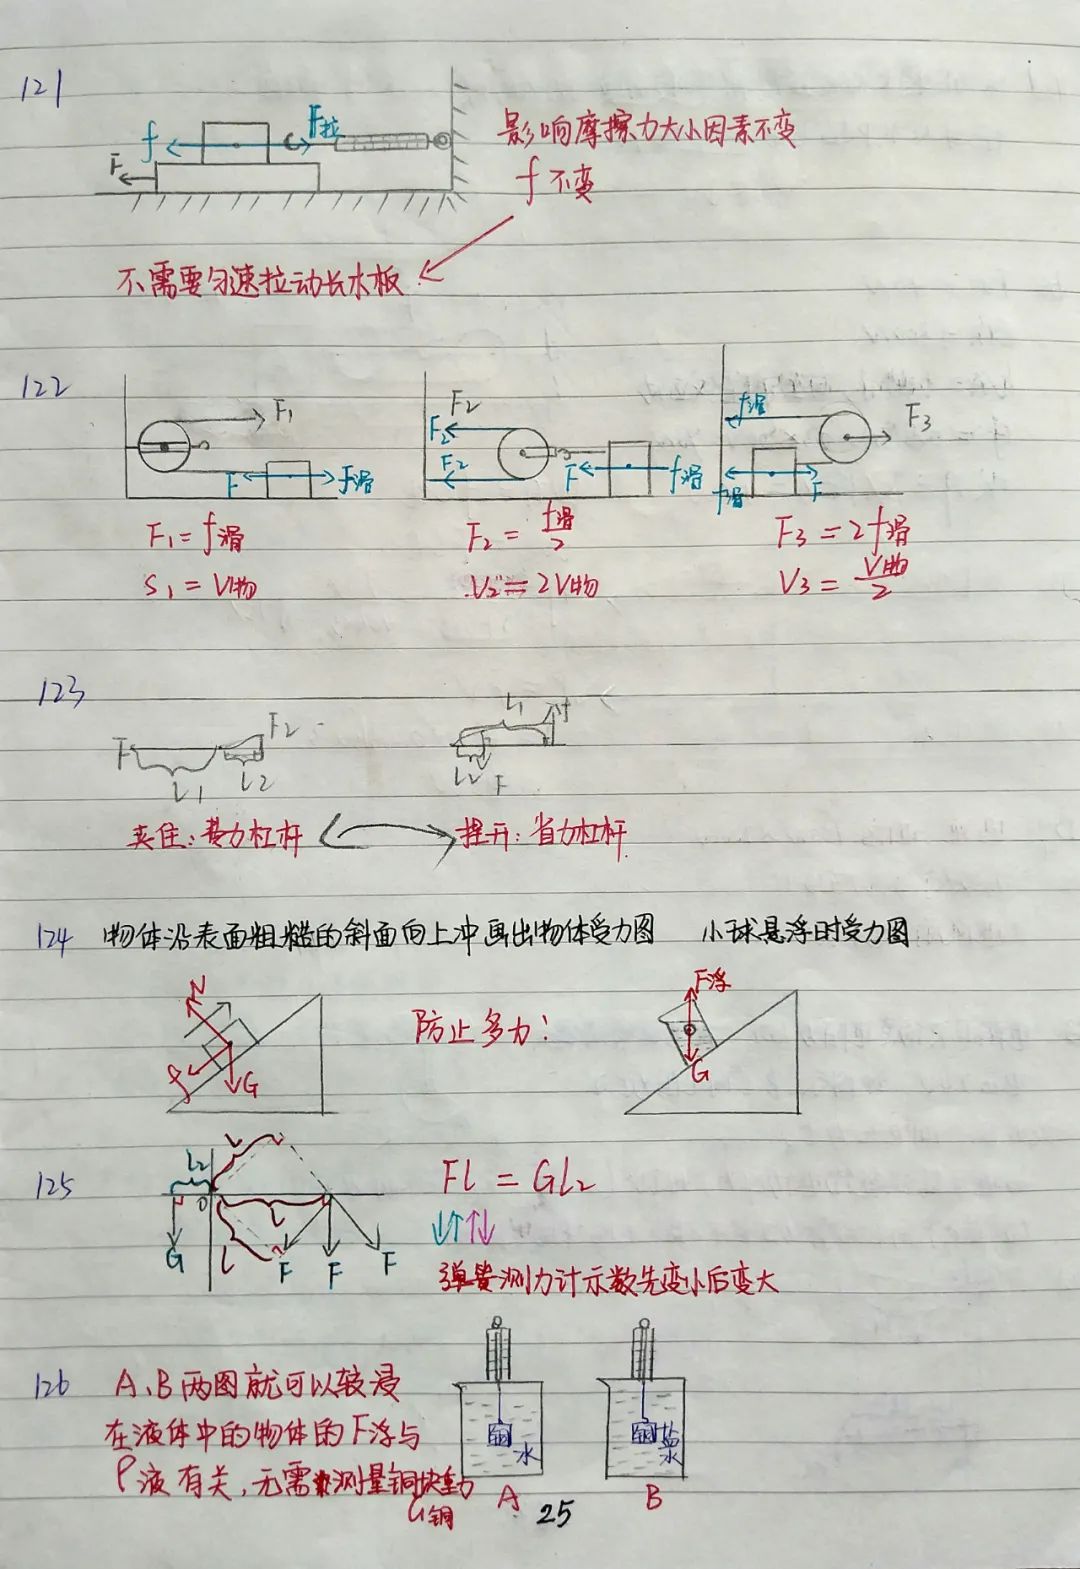 121
f F F拉
影响摩擦力大小因素不变
f 不变
不需要匀速拉动长木板
122
F1 F f滑
F2 F2 F2 F f滑
f滑 F3 f滑 F
F1 = f滑 F2 = f滑/2 F3 = 2f滑
S1 = V物 V2 = 2V物 V3 = V物/2
123
F F2 L1 L2
L1 f L2 F
夹住:费力杠杆 捏开:省力杠杆
124 物体沿表面粗糙的斜面向上冲画出物体受力图 小球悬浮时受力图
N f G
防止多力:
F浮 G
125
L2 L O L L G F F F
FL = GL2
↓↑↑↓
弹簧测力计示数先变小后变大
126 A、B两图就可以较浸
在液体中的物体的F浮与
ρ液有关,无需测量铜块重力
G铜
铜 水 A
铜 盐水 B
25